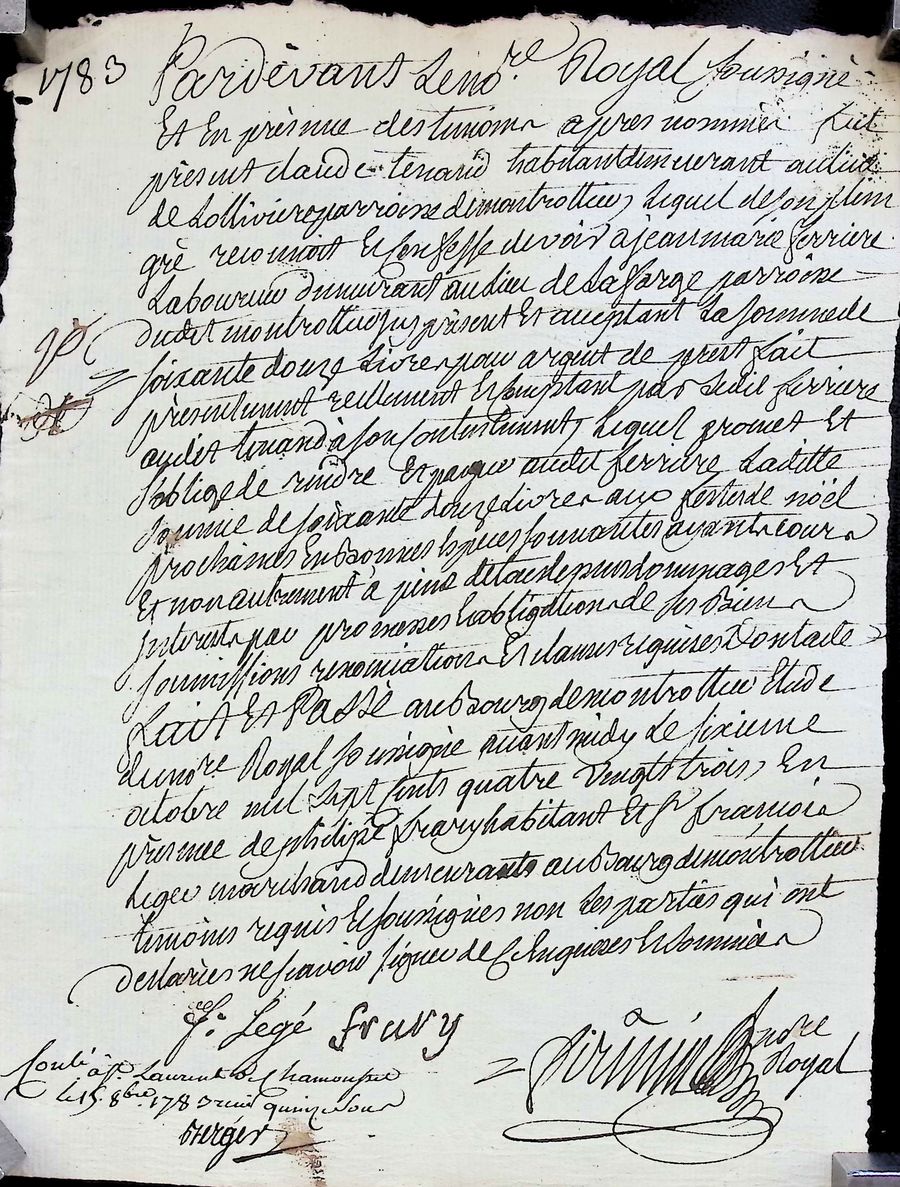 1783
Pardevant Le no.re Royal soussigné
Et En présence des temoins apres nommés fut
présent claude tenaud habitant demeurant au lieu
de Lollivierre parroisse de montrottier, Lequel de son plein
gré reconnoit Et Confesse devoir à jean marie ferriere
Laboureur demeurant au lieu de La farge parroisse
dudit montrottier ycy présent Et acceptant La somme de
soixante douze Livres pour argent de prest fait
présentement reellement Et Comptant par Ledit ferriere
audit tenaud à son Contentement, Lequel promet Et
s'oblige de rendre Et payer audit ferriere Laditte
somme de soixante douze Livres aux festes de nöel
prochaines En Bonnes Espèces sonnantes ayants cours
Et non autrement à peine de tous depens dommages Et
Interests par promesses Et obligations de ses Biens
soumissions renonciations Et clauses requises Dont acte
fait Et Passé au Bourg de montrottier Etude
du no.re Royal soussigné avant midy Le sixieme
octobre mil sept cents quatre vingt trois, En
présence de philippe frary habitant Et s.r francois
Leger marchand demeurants au Bourg de montrottier
temoins requis Et soussignés non Les parties qui ont
declarées ne scavoir signer de ce Enquises Et sommées
f.s Legé frary
no.re
Royal
Conlé à s.t Laurent de Chamousset
le 15 8bre 1783 reçu quinze sous
Berger